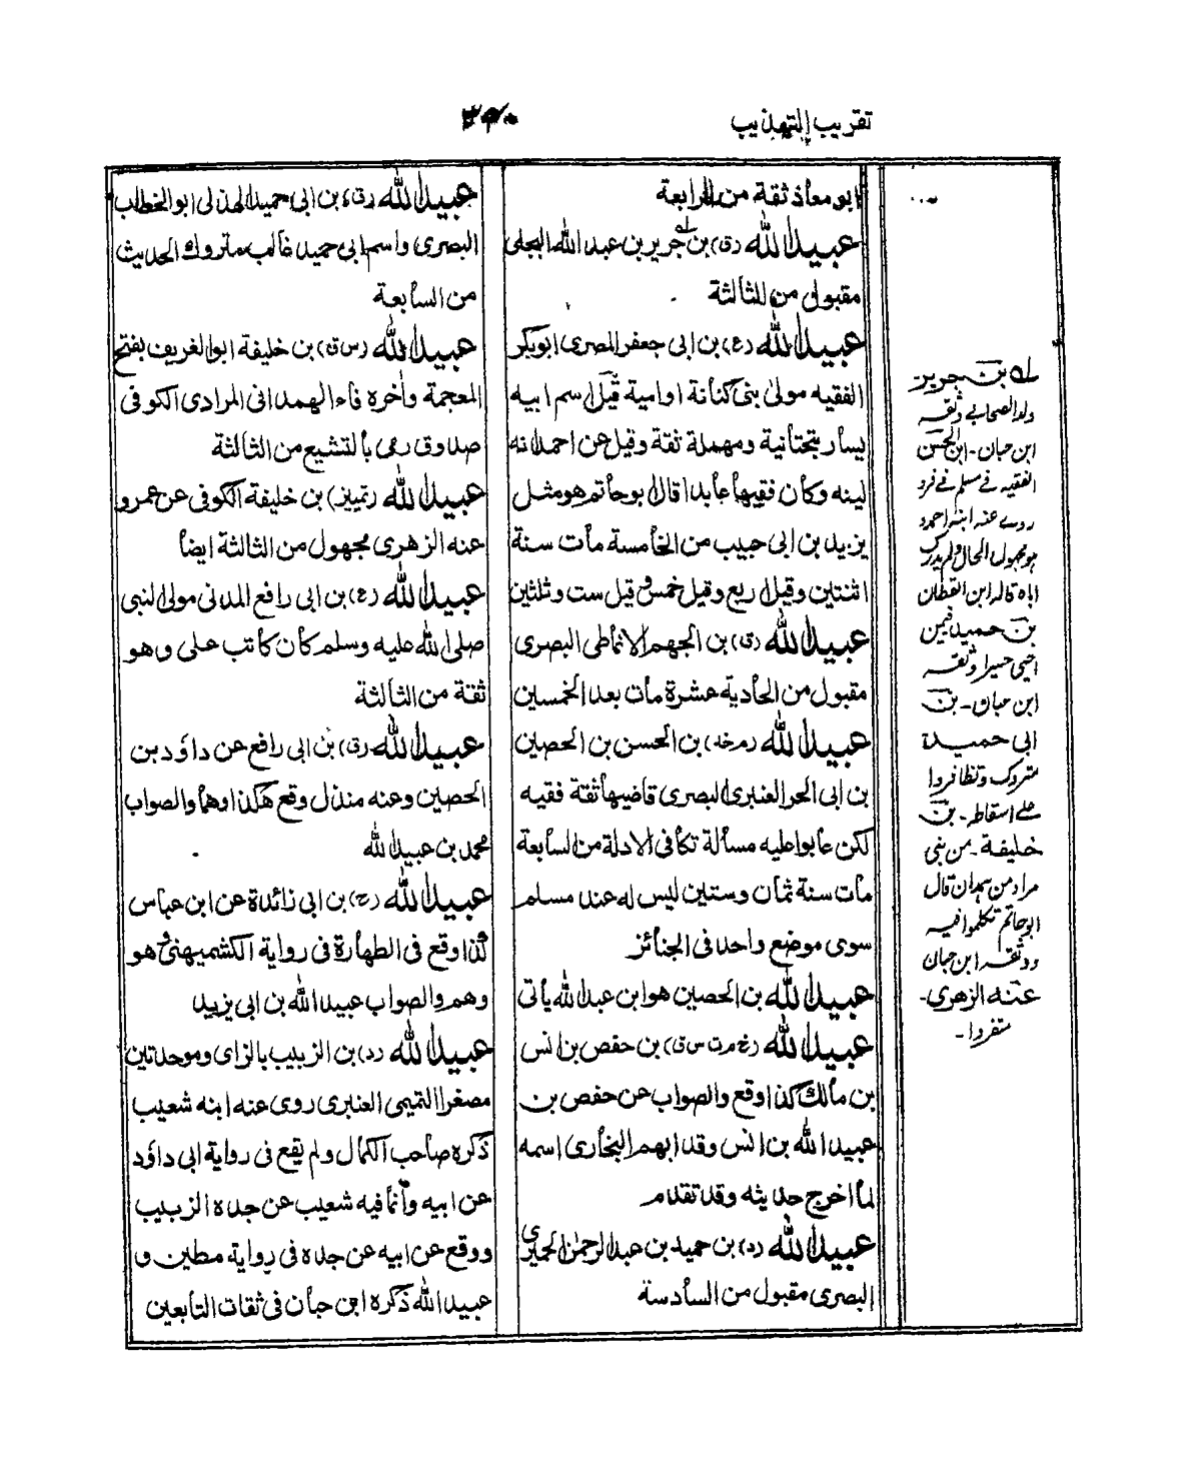 تقريب التهذيب
٣٤٠
ابو معاذ ثقة من الرابعة
عبيد الله (ق) بن جرير بن عبد الله البجلى
مقبول من الثالثة
عبيد الله (ع) بن ابى جعفر المصرى ابو بكر
الفقيه مولى بنى كنانة او امية قيل اسم ابيه
يسار بتحتانية ومهملة ثقة وقيل عن احمد انه
لينه وكان فقيها عابدا قال ابو حاتم هو مثل
يزيد بن ابى حبيب من الخامسة مات سنة
اثنتين وقيل اربع وقيل خمس وقيل ست وثلثين
عبيد الله (ق) بن الجهم الانماطى البصرى
مقبول من الحادية عشرة مات بعد الخمسين
عبيد الله (م خد) بن الحسن بن الحصين
بن ابى الحر العنبرى البصرى قاضيها ثقة فقيه
لكن عابوا عليه مسألة تكافى الادلة من السابعة
مات سنة ثمان وستين ليس له عند مسلم
سوى موضع واحد فى الجنائز
عبيد الله بن الحصين هو ابن عبد الله ياتى
عبيد الله (خ م ت س ق) بن حفص بن انس
بن مالك كذا وقع والصواب عن حفص بن
عبيد الله بن انس وقد ابهم البخارى اسمه
لما اخرج حديثه وقد تقدم
عبيد الله (د) بن حميد بن عبد الرحمن الحميرى
البصرى مقبول من السادسة
عبيد الله (ق) بن ابى حميد الهذلى ابو الخطاب
البصرى واسم ابى حميد غالب متروك الحديث
من السابعة
عبيد الله (س ق) بن خليفة ابو الغريف بفتح
المعجمة واخره فاء الهمدانى المرادى الكوفى
صدوق رمى بالتشيع من الثالثة
عبيد الله (تمييز) بن خليفة الكوفى عن عمر و
عنه الزهرى مجهول من الثالثة ايضا
عبيد الله (ع) بن ابى رافع المدنى مولى النبى
صلى الله عليه وسلم كان كاتب على وهو
ثقة من الثالثة
عبيد الله (ق) بن ابى رافع عن داؤد بن
الحصين وعنه مندل وقع هكذا وهما والصواب
محمد بن عبيد الله
عبيد الله (خ) بن ابى زائدة عن ابن عباس
كذا وقع فى الطهارة فى رواية الكشميهنى وهو
وهم والصواب عبيد الله بن ابى يزيد
عبيد الله (د) بن الزبيب بالزاى وموحدتين
مصغرا التميمى العنبرى روى عنه ابنه شعيب
ذكره صاحب الكمال ولم يقع فى رواية ابى داؤد
عن ابيه وانما فيه شعيب عن جده الزبيب
ووقع عن ابيه عن جده فى رواية مطين و
عبيد الله ذكره ابن حبان فى ثقات التابعين
له بن جرير-
ولد الصحابے وثقہ
ابن حبان - ابن الحسن
الفقیہ فے مسلم فے فرد
روے عنہ ابنہ احمد و
ہو مجہول الحال ولم یدرک
اباہ قالہ ابن القطان
بن حمید فیمن
وثقہ
ابن حبان - بن
ابی حمیدہ
متروک وتظافروا
علے اسقاطہ - بن
خلیفۃ - من بنی
مراد من ہمدان قال
ابو حاتم تکلموا فیہ
ووثقہ ابن حبان
عنہ الزهری-
متفردا-